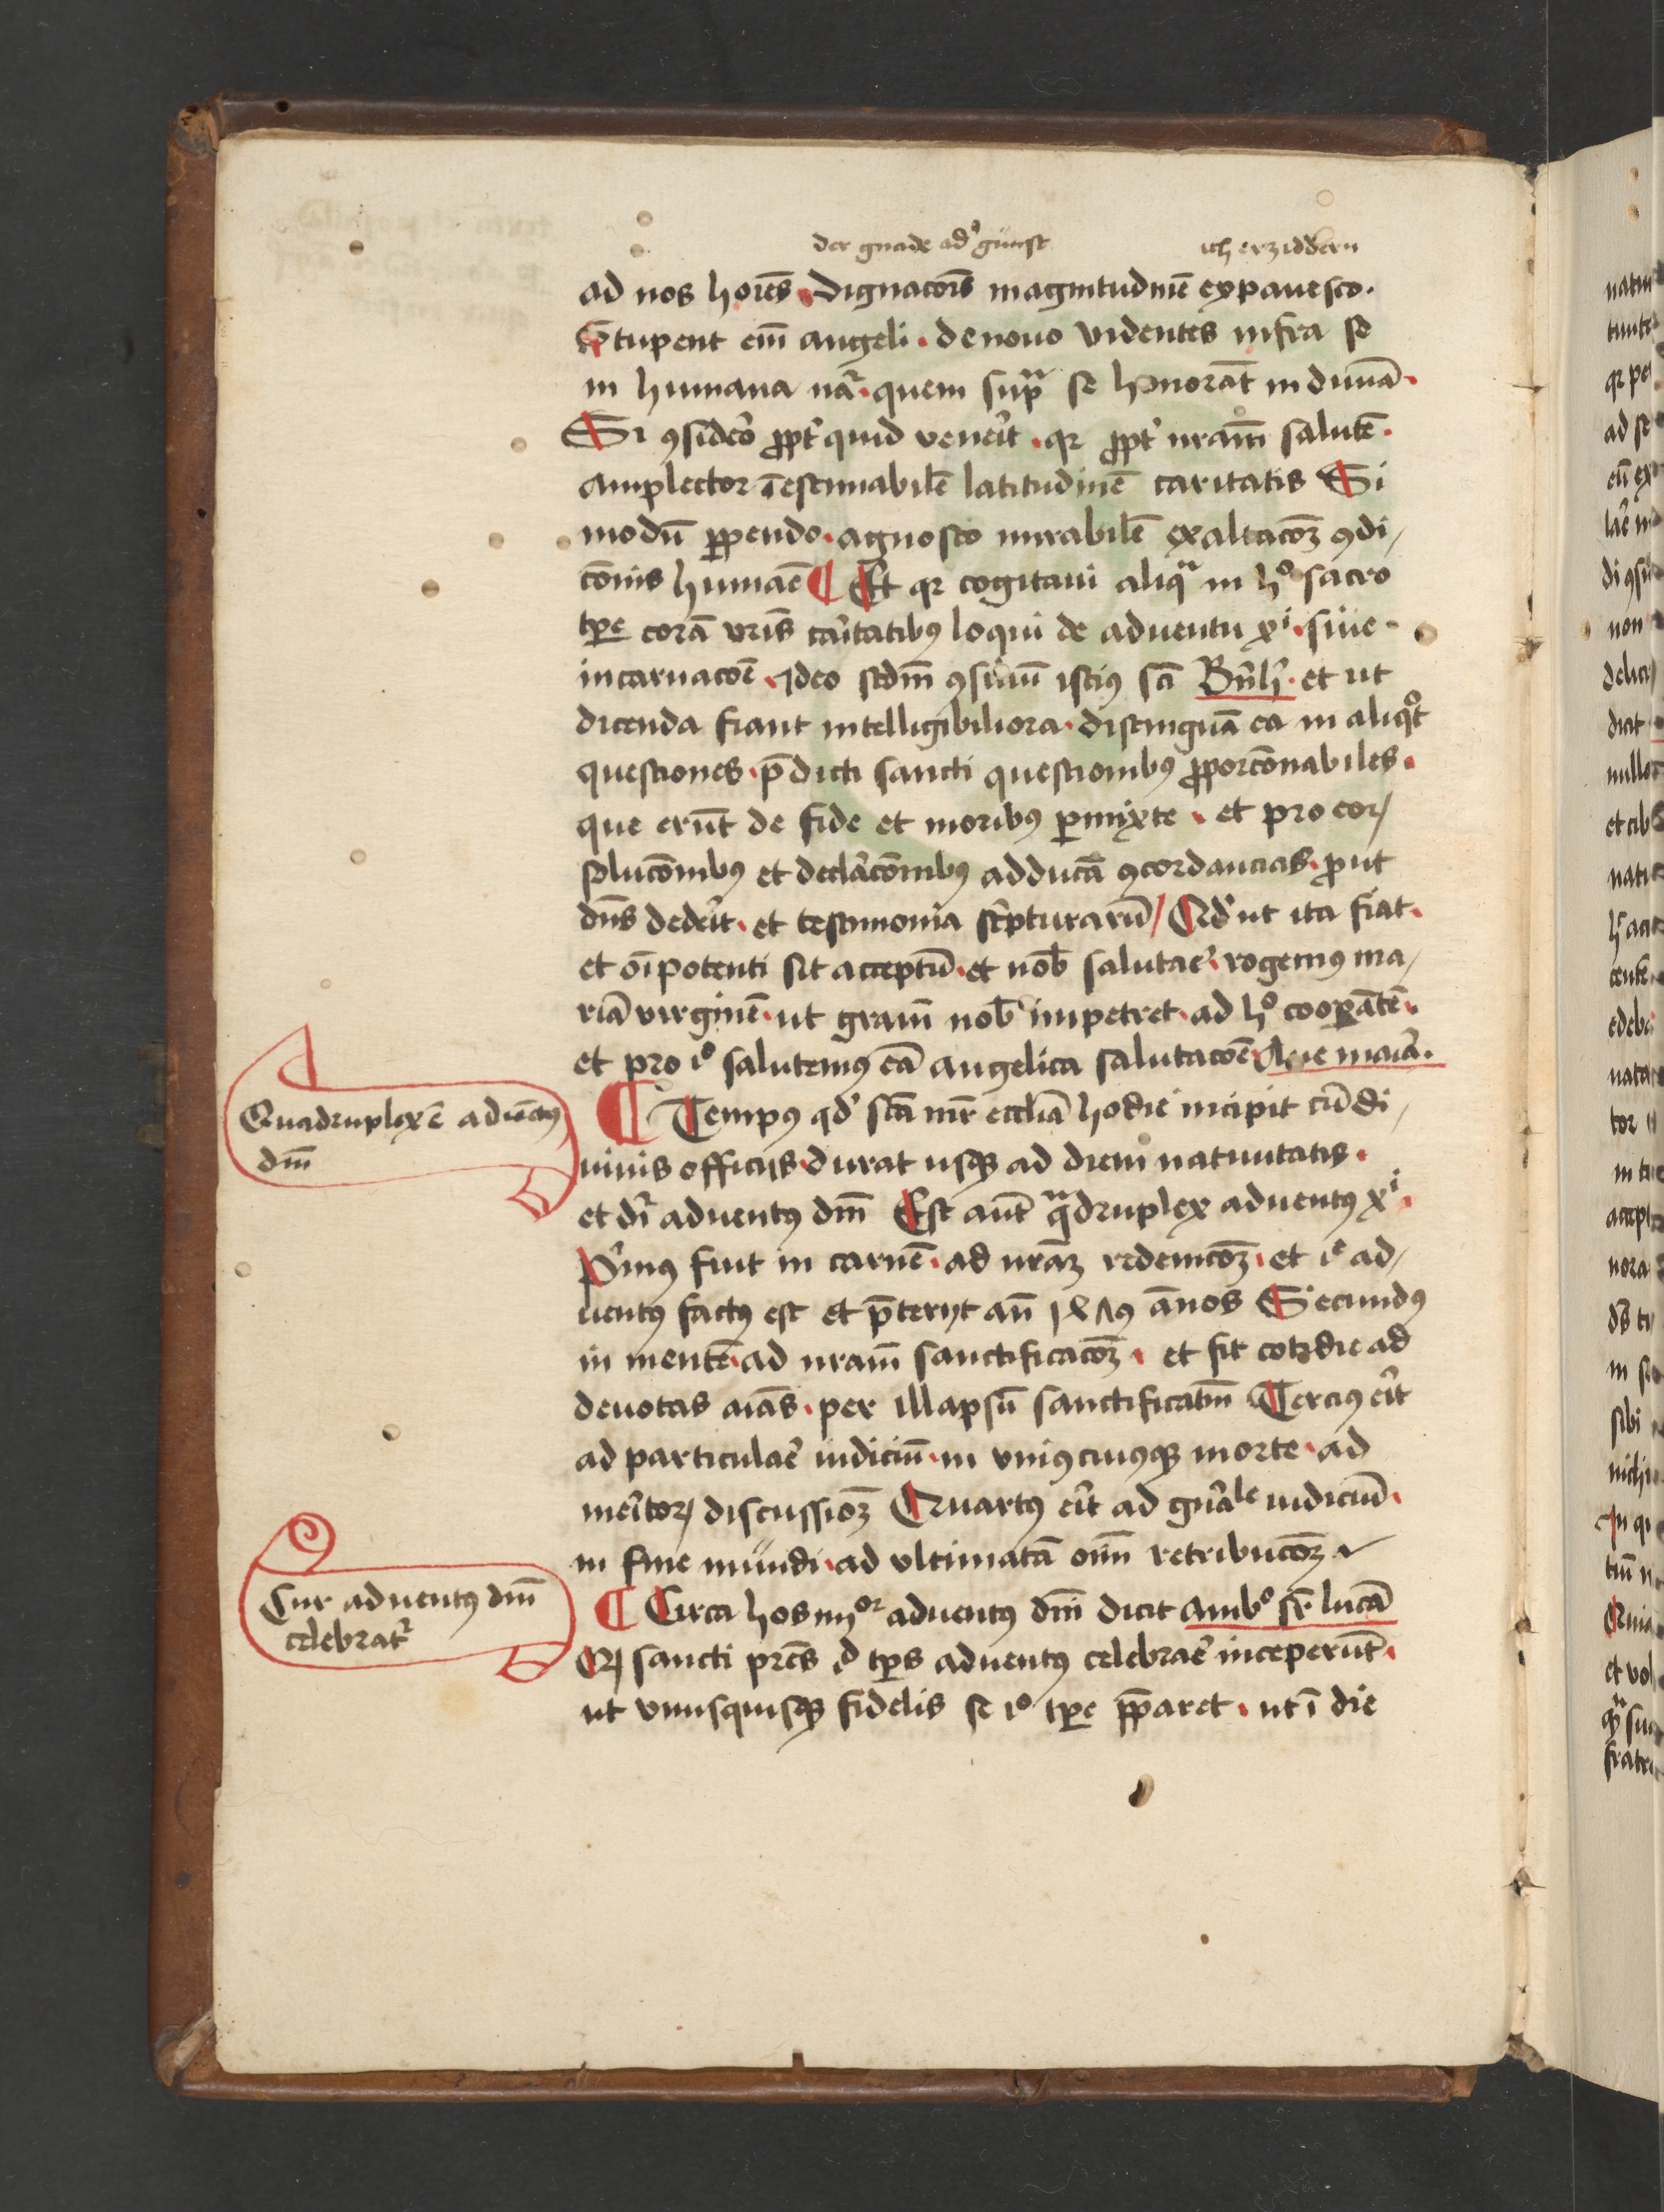 der gnade ad' gunst
ich erziddern
ad nos ho͞res. Dignaco͞is magnitudine͞ expauesco.
Stupent ei͞m angeli . denouo videntes infra se
in humana na͞r. quem supra se honora͞t in diui͞a.
Si ꝯsidero ꝓpt' quid venerit . qꝛ ꝓpt' nr͞am salute͞.
amplector i͞estimabile͞ latitudine͞ caritatis Si
modu͞ ꝑpendo . agnosco mirabile͞ exaltaco͞ꝫ ꝯdi/
co͞nis huma͞e ¶ Et qꝛ cogitaui aliqua in ho sacro
tꝑe cora͞ vr͞is ca͞itatibꝰ loqui de aduentu xi . siue
incarnaco͞e . Ideo scd͞m ꝯsiliu͞ istiꝰ sc͞i Bn͞h' . et ut
dicenda fiant intelligibiliora . distingua͞ ea in aliqot
questiones . p͞dicti sancti questionibꝰ ꝓporco͞nabiles .
que eru͞t de fide et moribꝰ ꝑmixte . et pro eoꝝ
soluco͞nibꝰ et declaraco͞nibꝰ adduca͞ ꝯcordancias . ꝓut
dn͞s dederit . et testimonia scripturaru͞ / Qd' ut ita fiat .
et oi͞potenti sit acceptu͞ . et nob͞ salutar͞e . rogemꝰ ma/
ria͞ virgine͞ . ut gra͞m nob͞ impetret . ad ho cooꝑa͞te͞ .
et pro io salutemꝰ ea͞ angelica salutaco͞e Aue mar͞ia .
¶ Tempꝰ qd' sc͞a mr͞ eccl͞ia hodie incipit cu͞ di/
uinis officijs durat usqꝫ ad diem natiuitatis .
et dr͞ aduentꝰ dn͞i Est aut͞ quadruplex aduentꝰ xi .
Primꝰ fuit in carne͞ . ad nr͞aꝫ redemco͞ꝫ . et ie ad/
uentꝰ factꝰ est et p͞terijt an͞ annos Secundꝰ
in mente͞ ad nr͞am sanctificaco͞ꝫ . et fit cotidie ad
deuotas ai͞as . per illapsu͞ sanctificat͞m Terciꝰ erit
ad particular͞e iudiciu͞ . in vniꝰcuiꝰqꝫ morte . ad
meritoꝝ discussio͞ꝫ Quartꝰ erit ad gn͞ale iudiciu͞ .
in fine mundi . ad vltimata͞ oi͞m retribuco͞ꝫ
¶ Circa hos iiijor aduentꝰ dn͞i dicit ambo sr͞ luca͞
Qꝝ sancti pr͞es id tꝑs aduentꝰ celebrar͞e inceperu͞t .
ut vnusquisqꝫ fidelis se io tꝑe p͞paret . ut i͞ die
Quadruplex e͞ aduentꝰ
dn͞i
Cur aduentꝰ dn͞i
celebrat'